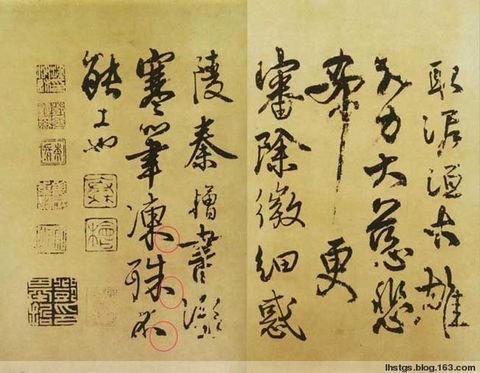 取泥洹大雄
大力大慈悲
希更
審除微細惑
陵秦檜書深
寒筆凍殊不
能工也
lhstgs.blog.163.com